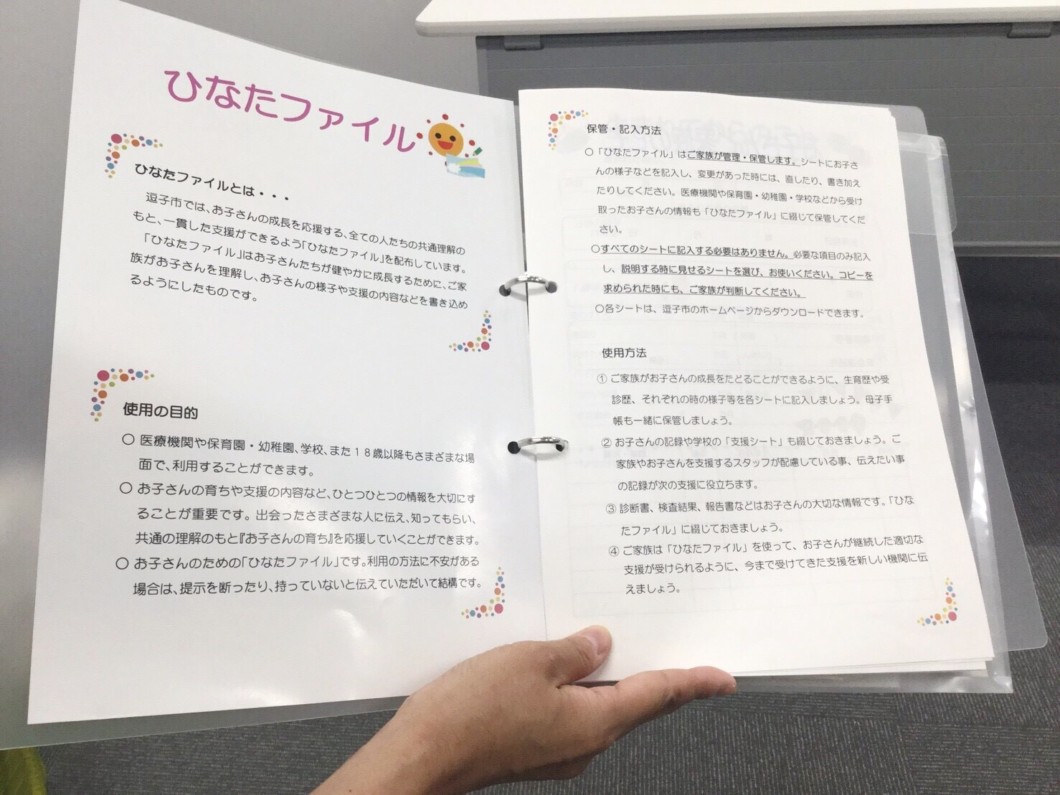 ひなたファイル
ひなたファイルとは・・・
逗子市では、お子さんの成長を応援する、全ての人たちの共通理解の
もと、一貫した支援ができるよう「ひなたファイル」を配布しています。
「ひなたファイル」はお子さんたちが健やかに成長するために、ご家
族がお子さんを理解し、お子さんの様子や支援の内容などを書き込め
るようにしたものです。
使用の目的
○ 医療機関や保育園・幼稚園、学校、また18歳以降もさまざまな場
面で、利用することができます。
○ お子さんの育ちや支援の内容など、ひとつひとつの情報を大切にす
ることが重要です。出会ったさまざまな人に伝え、知ってもらい、
共通の理解のもと『お子さんの育ち』を応援していくことができます。
○ お子さんのための「ひなたファイル」です。利用の方法に不安がある
場合は、提示を断ったり、持っていないと伝えていただいて結構です。
保管・記入方法
○「ひなたファイル」はご家族が管理・保管します。シートにお子さ
んの様子などを記入し、変更があった時には、直したり、書き加え
たりしてください。医療機関や保育園・幼稚園・学校などから受け
取ったお子さんの情報も「ひなたファイル」に綴じて保管してくだ
さい。
○すべてのシートに記入する必要はありません。必要な項目のみ記入
し、説明する時に見せるシートを選び、お使いください。コピーを
求められた時にも、ご家族が判断してください。
○各シートは、逗子市のホームページからダウンロードできます。
使用方法
① ご家族がお子さんの成長をたどることができるように、生育歴や受
診歴、それぞれの時の様子等を各シートに記入しましょう。母子手
帳も一緒に保管しましょう。
② お子さんの記録や学校の「支援シート」も綴じておきましょう。ご
家族やお子さんを支援するスタッフが配慮している事、伝えたい事
の記録が次の支援に役立ちます。
③ 診断書、検査結果、報告書などはお子さんの大切な情報です。「ひな
たファイル」に綴じておきましょう。
④ ご家族は「ひなたファイル」を使って、お子さんが継続した適切な
支援が受けられるように、今まで受けてきた支援を新しい機関に伝
えましょう。